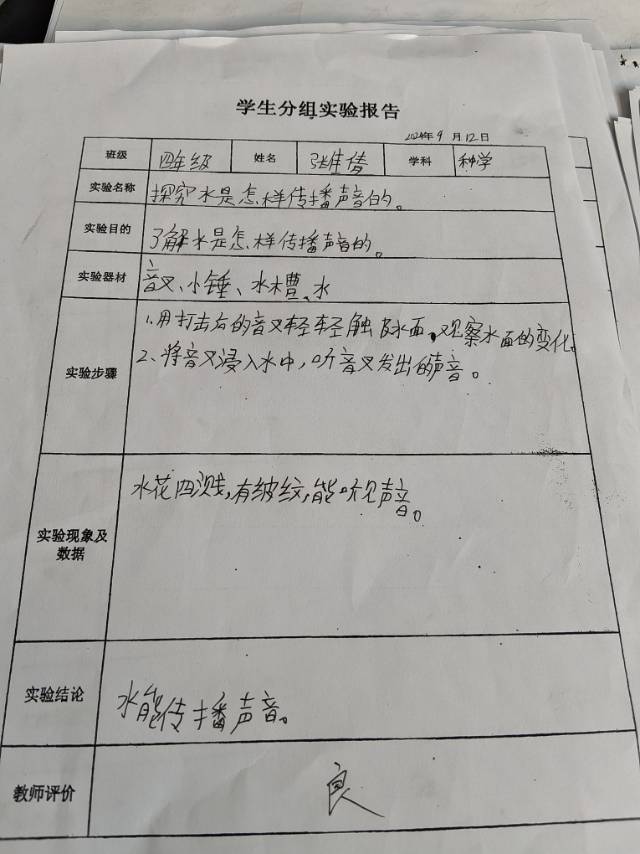 学生分组实验报告
2024年9月12日
班级 四年级 姓名 张倩 学科 科学
实验名称 探究水是怎样传播声音的。
实验目的 了解水是怎样传播声音的。
实验器材 音叉、小锤、水槽、水
实验步骤 1.用打击后的音叉轻轻触及水面,观察水面的变化。
2、将音叉浸入水中,听音叉发出的声音。
实验现象及数据 水花四溅,有波纹,能听见声音。
实验结论 水能传播声音。
教师评价 良